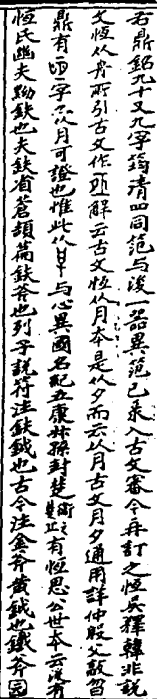 右鼎銘九十又九字筠清四同范与後一器異范已录入古文審今再訂之恒吳釋韓非說
文恒从舟所引古文作解云古文恒从月本是从夕而云从月古文月夕通用詳仲殷父敦曶
鼎有字亦从月可證也惟此从与心異國名紀五康叔孫封楚有恒思公世本云汲有
恒氏幽夫黝鈇也夫鈇省蒼頡篇鈇斧也列子說符注鈇鉞也古今注金斧黃鉞也鐵斧玄